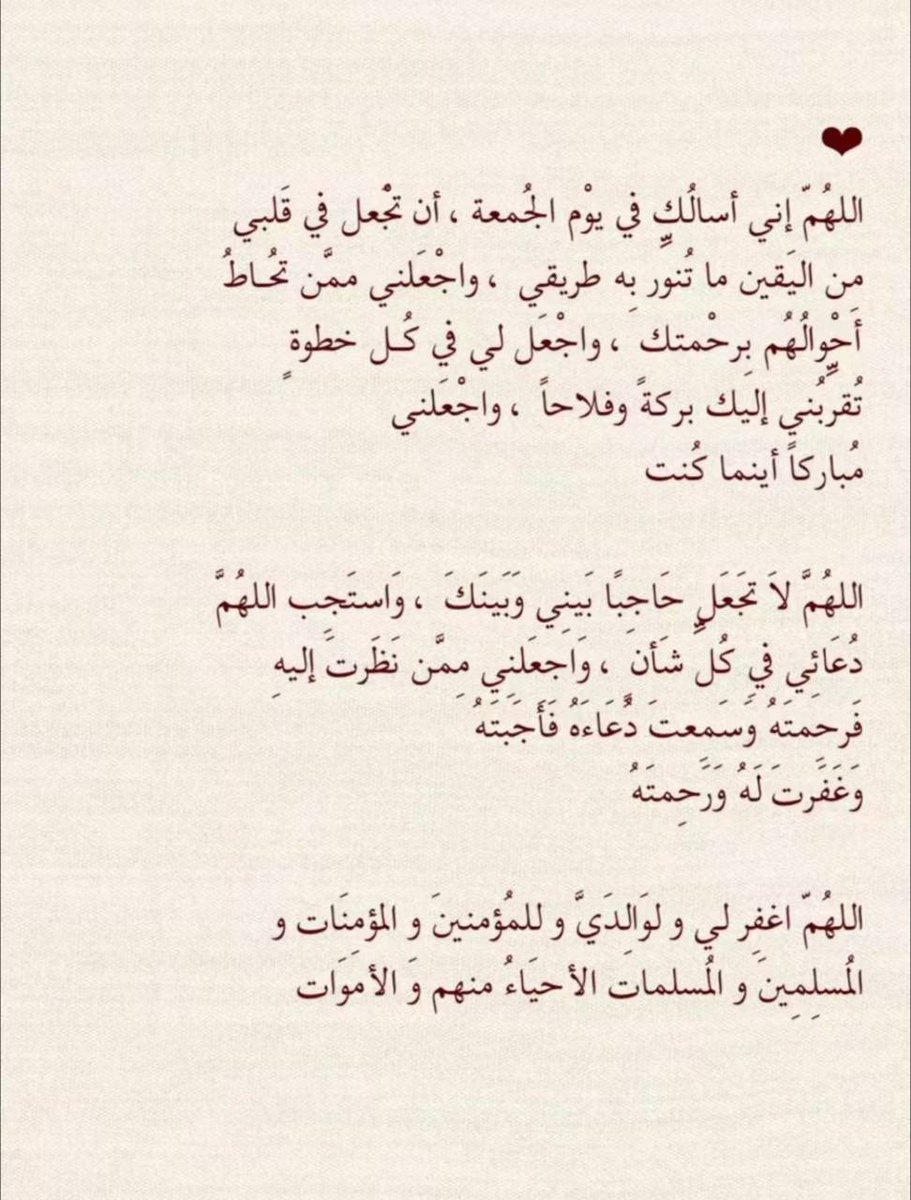 اللهُمّ إني أسالُك في يوْم الجُمعة ، أن تجْعل في قَلبي
مِن اليَقين ما تُنور بِه طريقي ، واجْعَلني ممَّن تحُـاطُ
أَحْوالُهُم بِرحْمتك ، واجْعَل لي في كُـل خطوةٍ
تُقربُني إليك بركةً وفلاحاً ، واجْعَلني
مُباركاً أينما كُنت
اللهُمَّ لاَ تَجَعَلِ حَاجِبًا بَينِي وَبَينَكَ ، وَاستَجِب اللهُمَّ
دُعَائِي فيِ كُل شَأن ، وَاجعَلنِي مِمَّن نَظَرتَ إليهِ
فَرحَمتَهُ وَسَمعتَ دُعَاءَهُ فَأَجَبتَهُ
وَغَفَرتَ لَهُ وَرَحِمتَهُ
اللهُمّ اغفِر لي و لوَالدَيَّ و للمُؤمنينَ و المؤمِنَات و
المُسلِمِينَ و المُسلماتِ الأحيَاءُ منهم وَ الأموَات